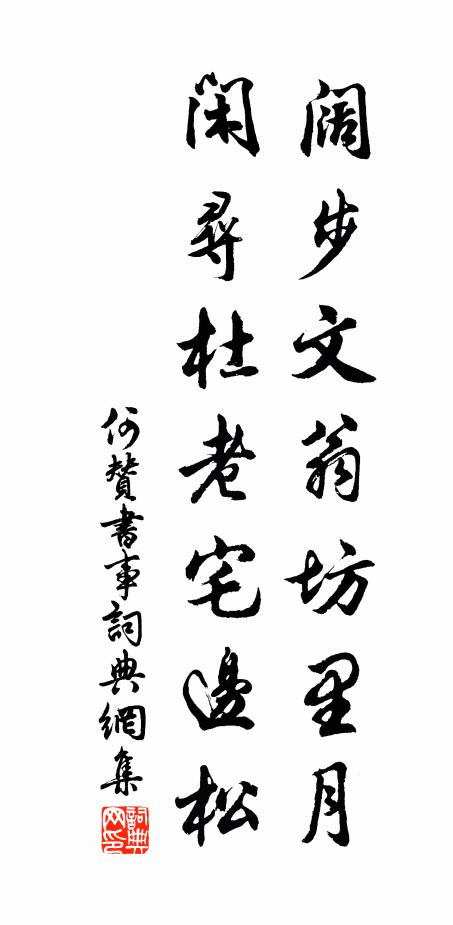 闊步文翁坊里月
閑尋杜老宅邊松
何贊書事詞典網集
詞典网印